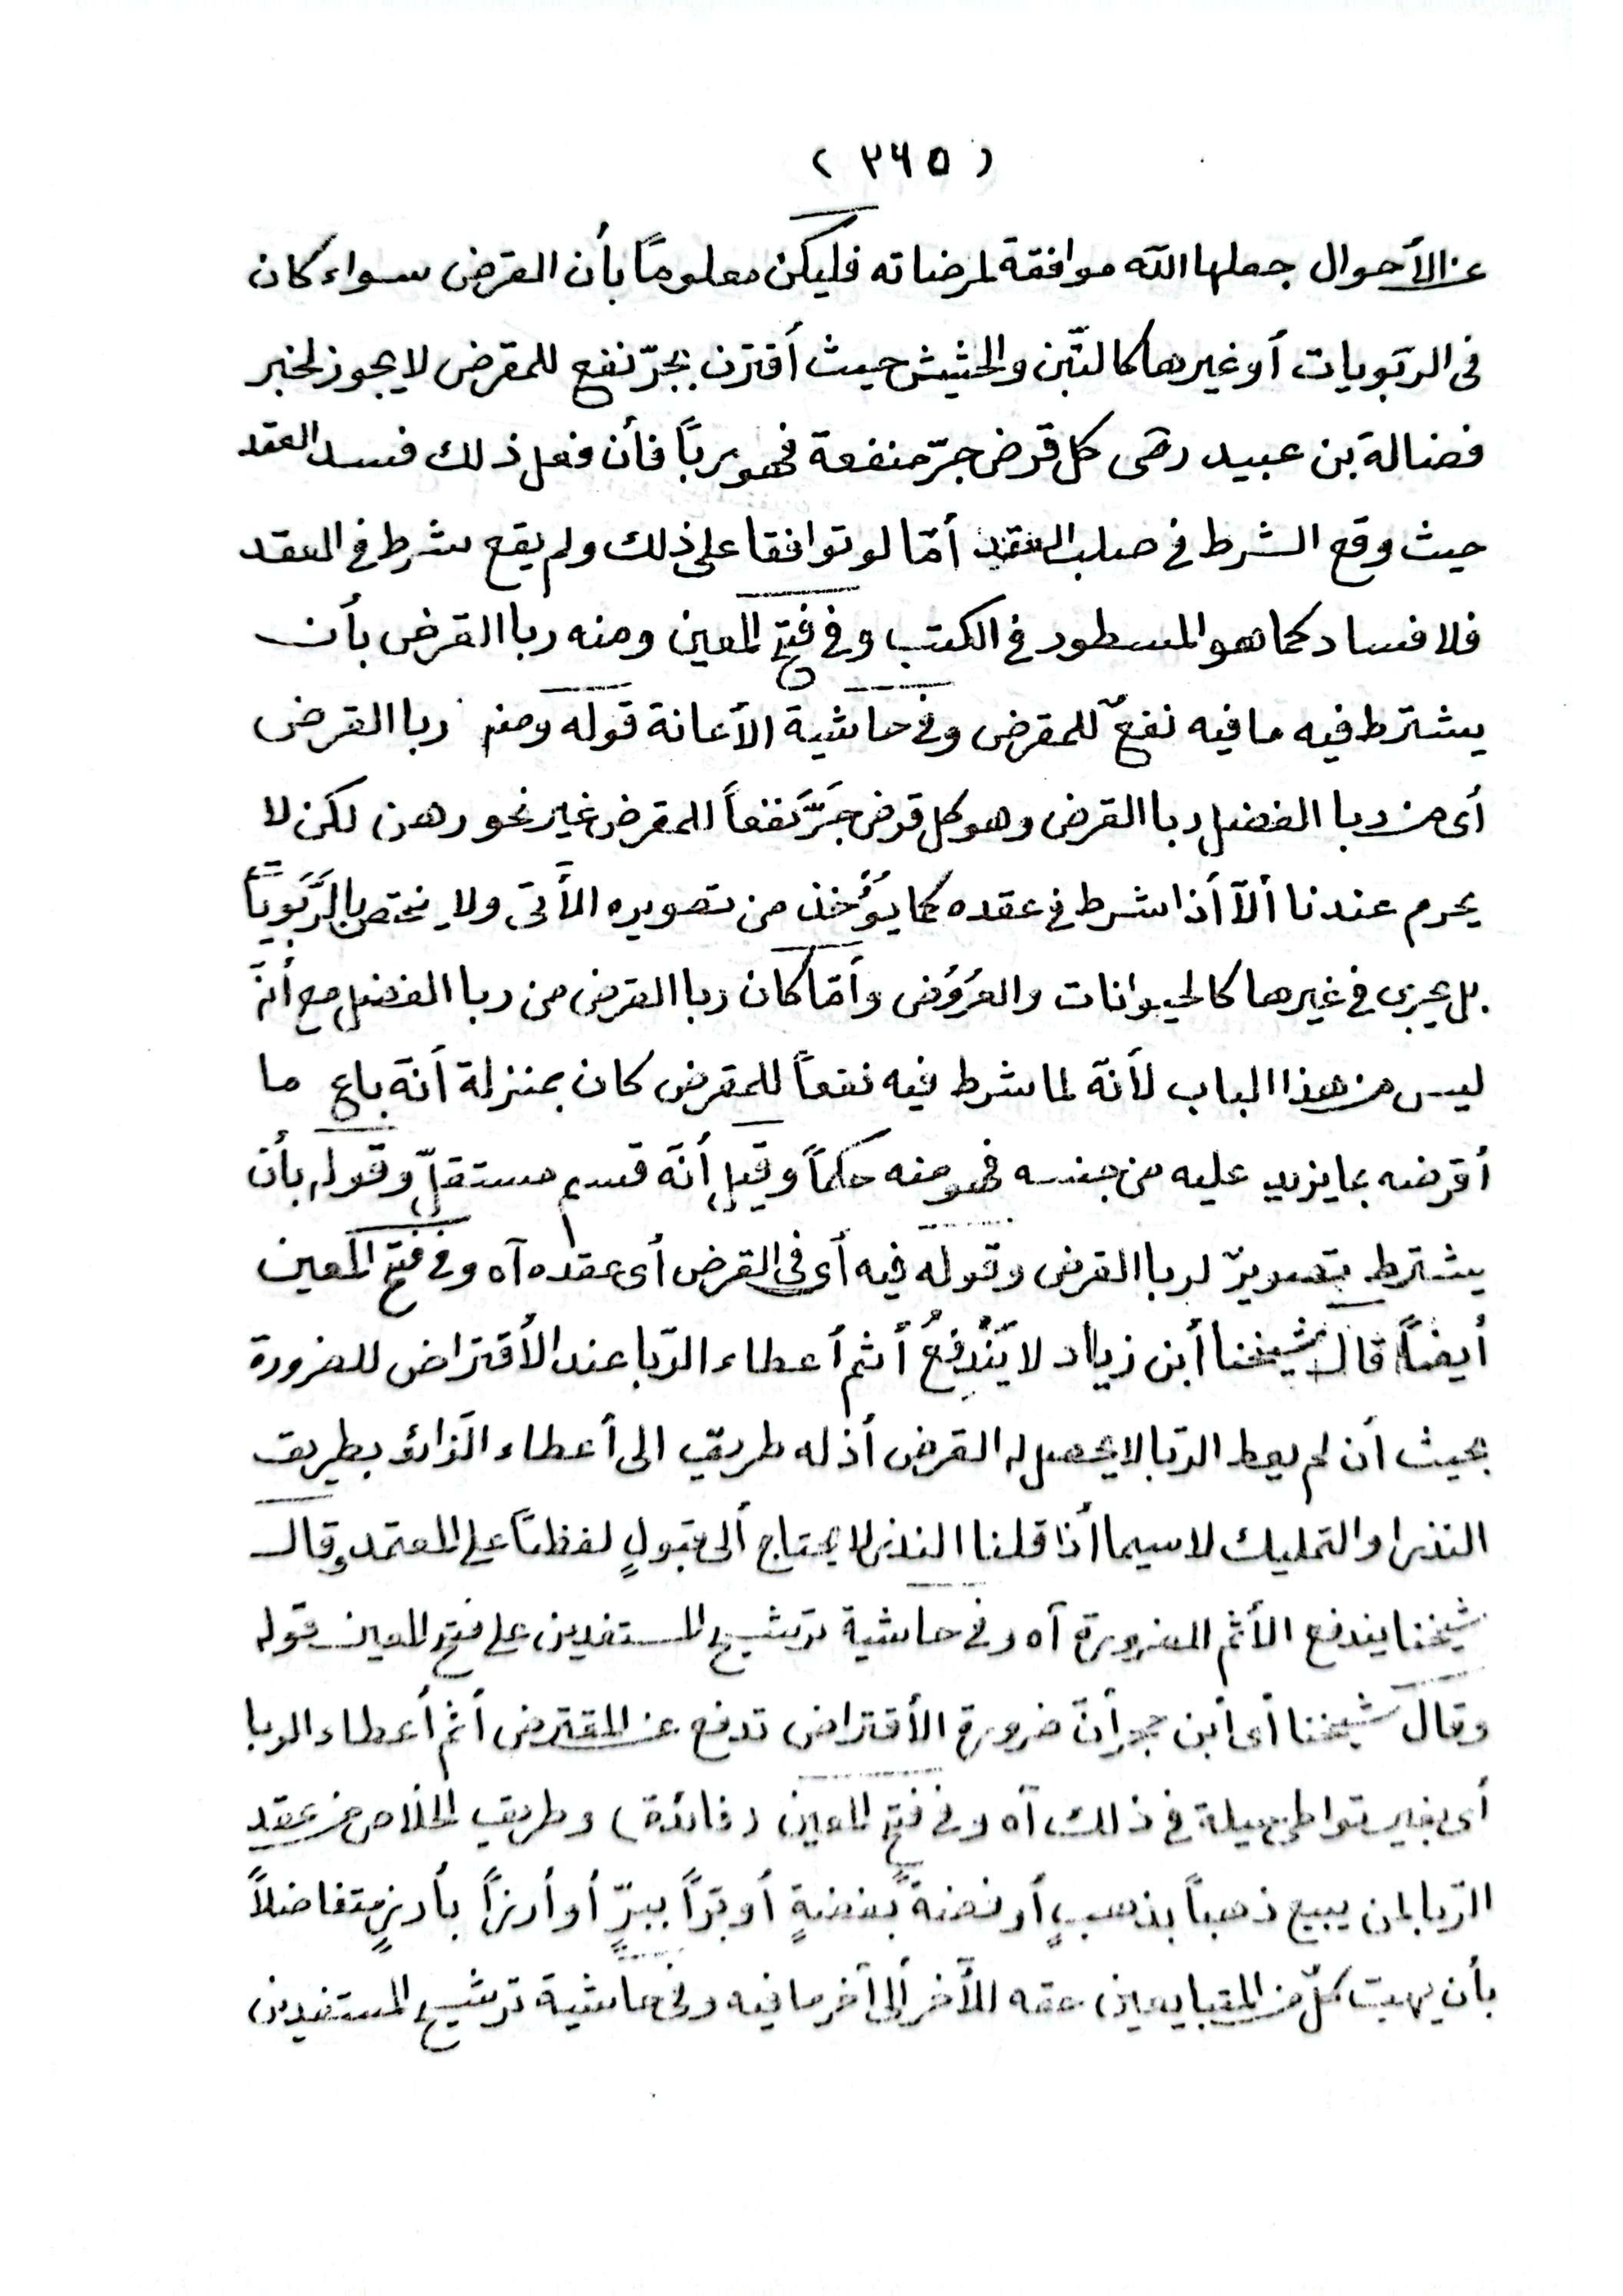 ( ٣٦٥ )
عن الأحوال جعلها الله موافقة لمرضاته فليكن معلوماً بأن القرض سواء كان
فى الربويات أو غيرها كالتّبن والحشيش حيث أقترن بجرّ نفع للمقرض لا يجوز لخبر
فضالة بن عبيد رضى كل قرض جرّ منفعة فهو رباً فأن فعل ذلك فسد العقد
حيث وقع الشرط فى صلب العقد أمّا لو توافقا على ذلك ولم يقع شرط فى العقد
فلا فساد كما هو المسطور فى الكتب وفى فتح المعين ومنه ربا القرض بأن
يشترط فيه ما فيه نفعٌ للمقرض وفى حاشية الأعانة قوله ومنه ربا القرض
أى من ربا الفضل ربا القرض وهو كل قرض جَرَّ نفعاً للمقرض غير نحو رهن لكن لا
يحرم عندنا ألاّ أذا شرط فى عقده كما يؤُخذ من تصويره الأتى ولا يختص بالرَّبَويّا
بل يجرى فى غيرها كالحيوانات والعُرُوُض وأمّا كان ربا القرض من ربا الفضل مع أنّه
ليس من هذا الباب لأنّه لما شرط فيه نفعاً للمقرض كان بمنزلة أنّه باع ما
أقرضه بما يزيد عليه من جنسه فهو منه حكماً وقيل أنّه قسم مستقلّ وقوله بأن
يشترط تصويرٌ لربا القرض وقوله فيه أى فى القرض أى عقده آه وفى فتح المعين
أيضاً قال شيخنا أبن زياد لا يَنْدَفِعُ أثم أعطاء الرّبا عند الأقتراض للضرورة
بحيث أن لم يعط الرّبا لا يحصل له القرض أذ له طريق الى أعطاء الزائد بطريق
النذر او التمليك لاسيما أذا قلنا النذر لا يحتاج ألى قبولٍ لفظاً على المعتمد وقال
شيخنا يندفع الأثم للضرورة آه وفى حاشية ترشيح المستفدين على فتح المعين قوله
وقال شيخنا أى أبن حجر أنّ ضرورة الأقتراض تدفع عن المقترض أثم أعطاء الربا
أى بغير تواطئ حيلة فى ذلك آه وفى فتح المعين (فائدة) وطريق الخلاص من عقد
الرّبا لمن يبيع ذهباً بذهبٍ أو فضةً بفضةٍ أو برّاً ببرٍّ أو أرزاً بأرزٍ متفاضلاً
بأن يهب كلّ من المتبايعين حقه للأخر ألى آخر ما فيه وفى حاشية ترشيح المستفيدين